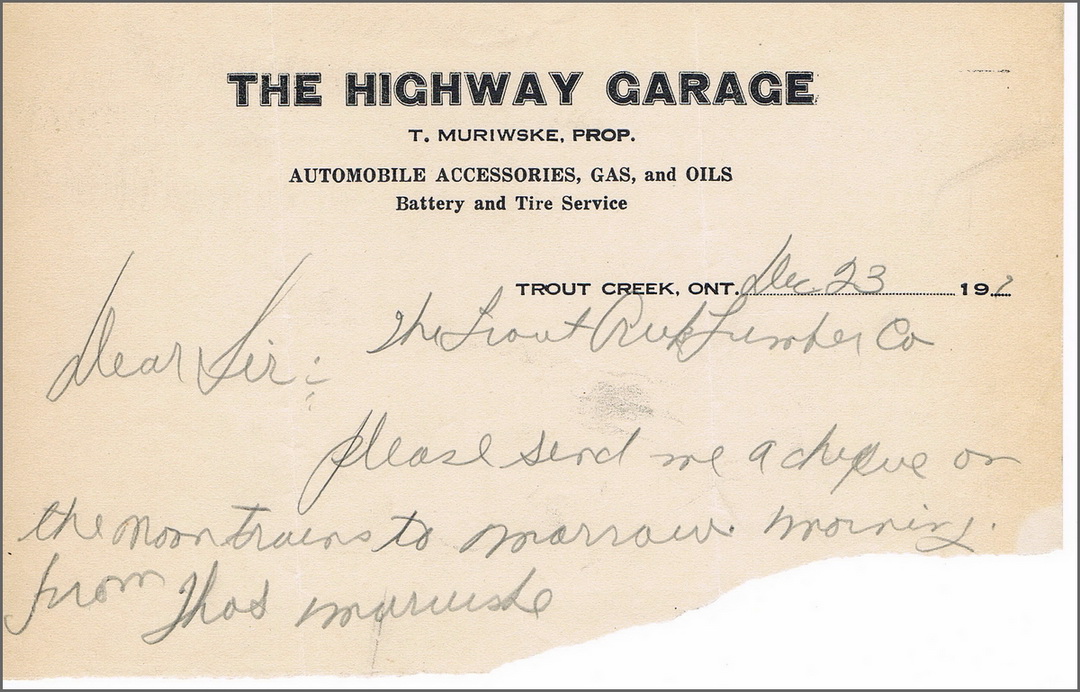 THE HIGHWAY GARAGE
T. MURIWSKE, PROP.
AUTOMOBILE ACCESSORIES, GAS, and OILS
Battery and Tire Service
TROUT CREEK, ONT. Dec 23 19
The Trout Creek Lumber Co
Dear Sir:
please send me a cheque on
the noon trains to morrow morning.
from Thos muriwske